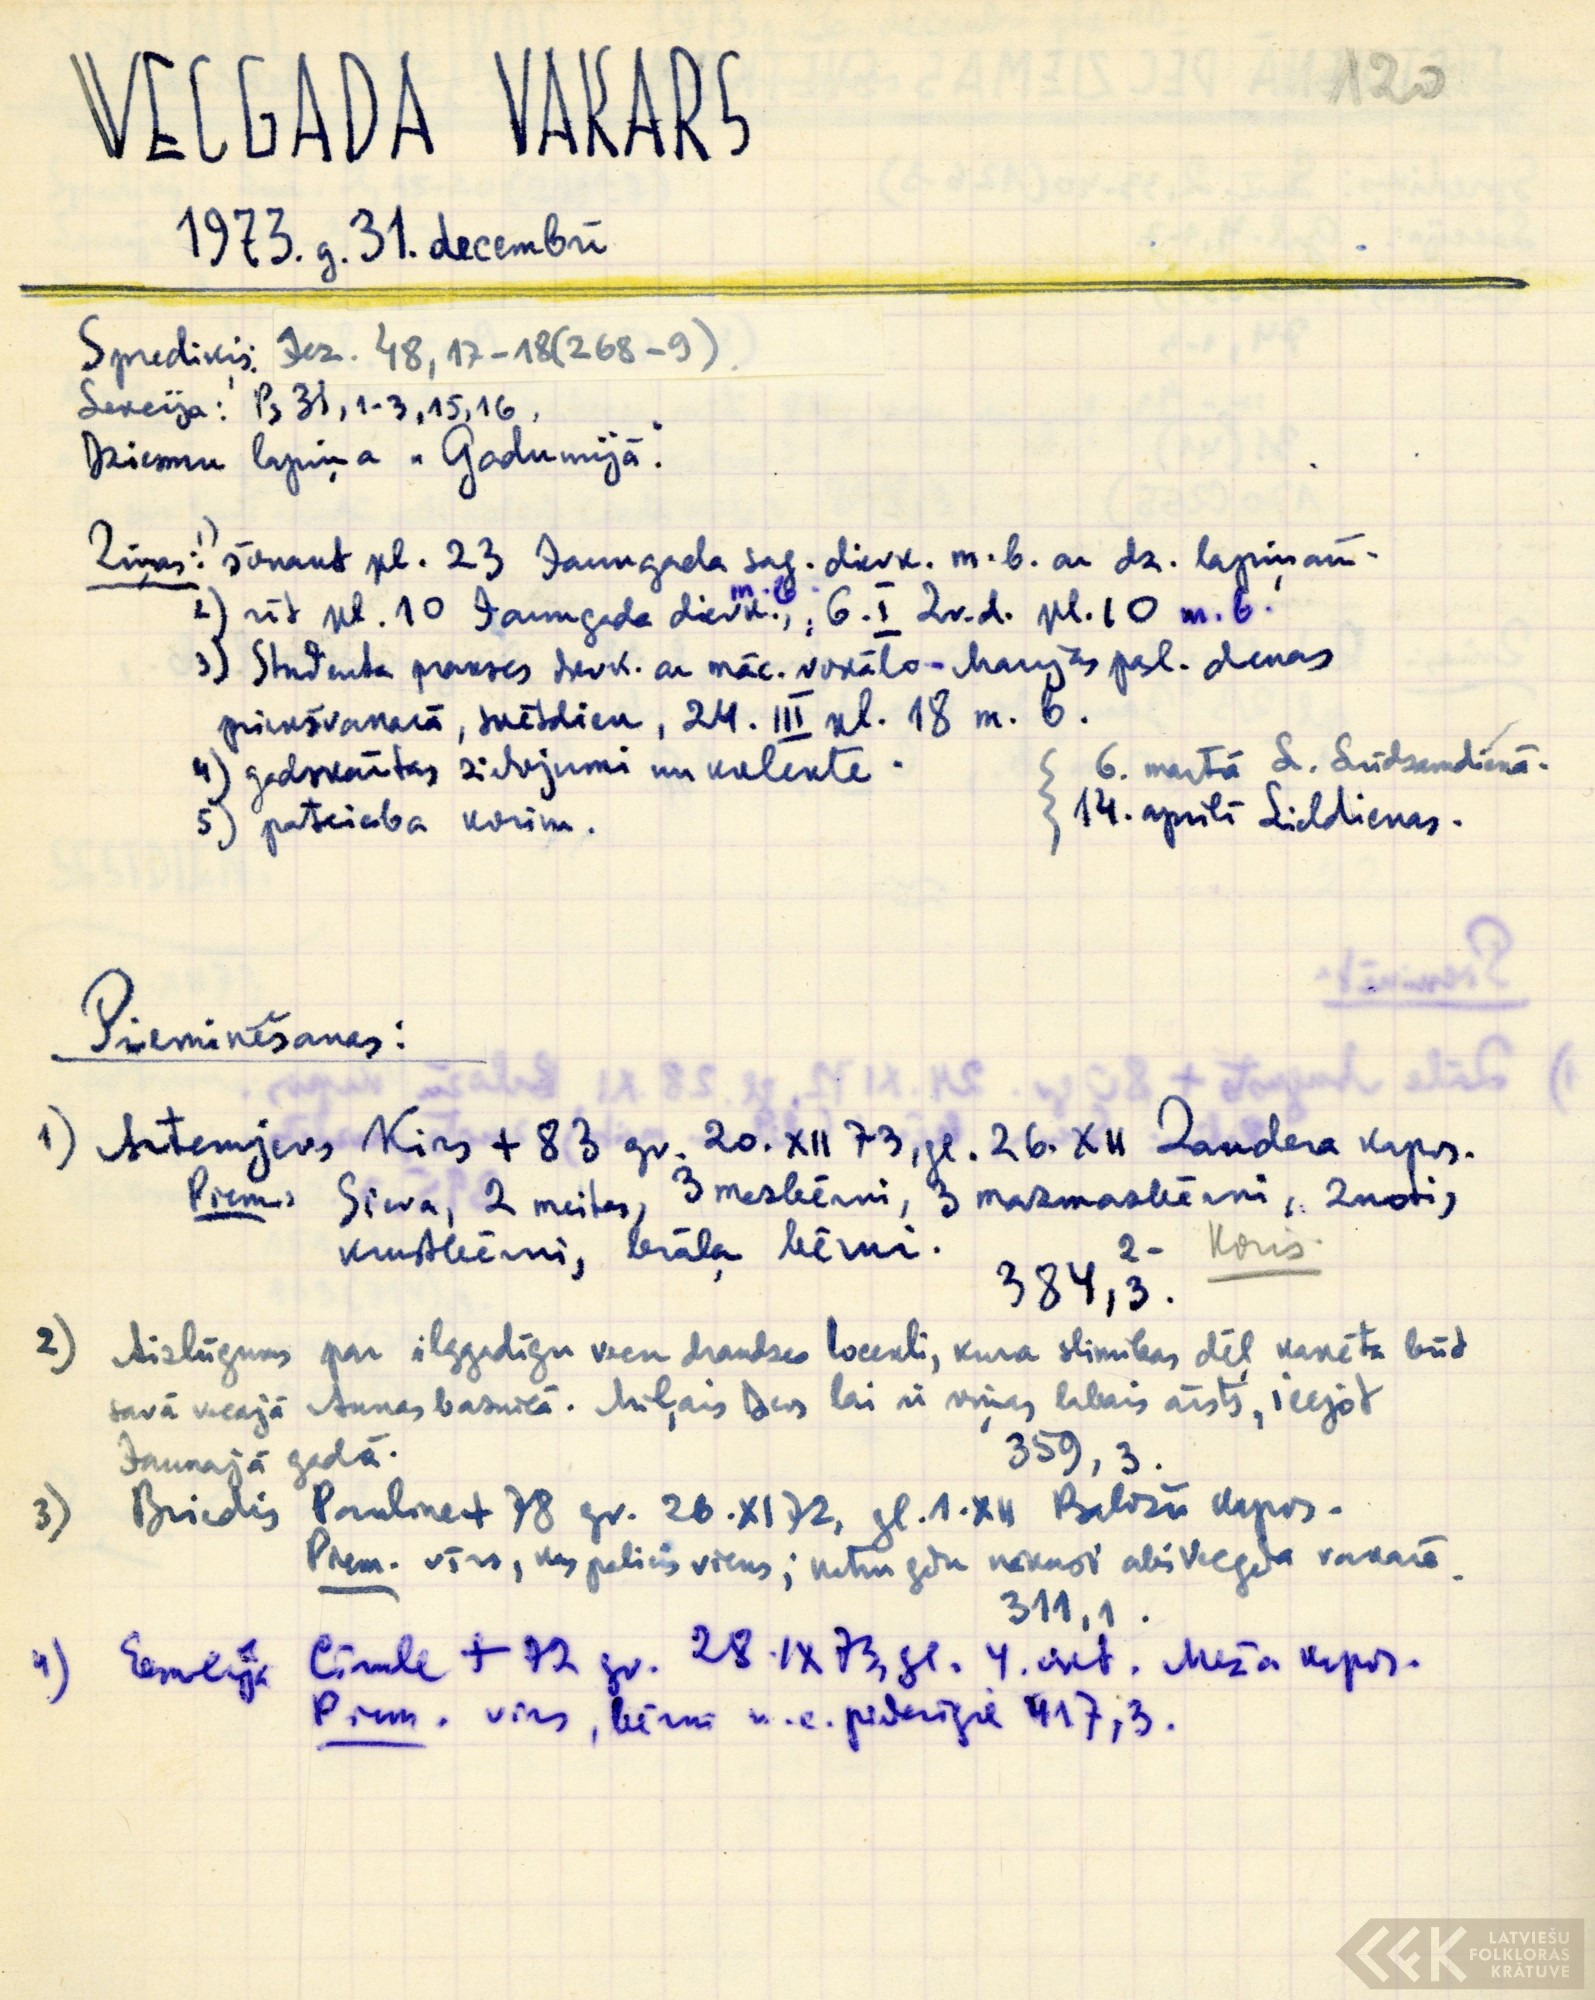 120
VECGADA VAKARS
1973. g. 31. decembrī
Sprediķis: Jez. 48, 17-18 (268-9).
Lekcija: Ps 31, 1-3, 15, 16.
Dziesmu lapiņa "Gadumijā".
Ziņas: 1) šonakt pl. 23 Jaungada sag. dievk. m.b. ar dz. lapiņām.
2) rīt pl. 10 Jaungada dievk. m.b.; 6. I Zv.d. pl. 10 m.b.
3) Studenta prakses dievk. ar māc. Marijas pasl. dienas
priekšvakarā, svētdien, 24. III pl. 18 m. b.
4) gadskārtas ziedojumi un kolekte.
5) pateicība korim.
6. martā L. Lūdzamdienā.
14. aprīlī Lieldienas.
Pieminēšanas:
1) Artemjevs Kirs + 83 gv. 20. XII 73, gl. 26. XII Zandera kapos.
Piem. Sieva, 2 meitas, 3 mazbērni, 3 mazmazbērni, 2 znoti,
krustbērni, brāļa bērni.
384, 2-3. Koris.
2) Aizlūgums par ilggadīgu vecu draudzes locekli, kura slimības dēļ kavēta būt
savā vecajā Annas baznīcā. Mīļais Dievs lai ir viņas labais ārsts, ieejot
Jaunajā gadā.
359, 3.
3) Briedis Pauline + 78 gv. 26. XI 72, gl. 1. XII Baložu kapos.
Piem. vīrs, kas palicis viens; katru gadu nākuši abi Vecgada vakarā.
311, 1.
4) Cīrule + 72 gv. 28. IX 73, gl. 4. okt. Meža kapos.
Piem. vīrs, bērni u.c. piederīgie 417, 3.
LATVIEŠU
FOLKLORAS
KRĀTUVE